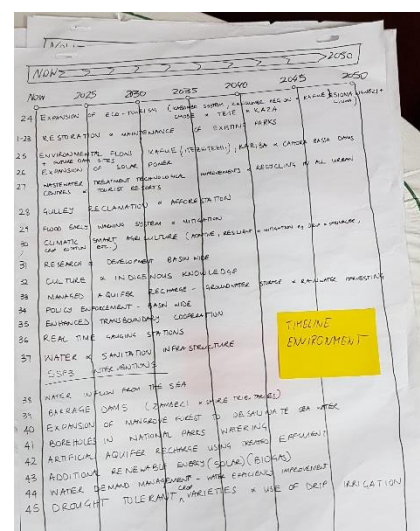 NOW
2050
NOW 2025 2030 2035 2040 2045 2050
24 EXPANSION OF ECO-TOURISM
1-23 RESTORATION & MAINTENANCE OF EXISTING PARKS
25 ENVIRONMENTAL FLOWS KAFUE (ITEZHITEZHI), KARIBA & CAHORA BASSA DAMS
+ FUTURE DAM SITES
26 EXPANSION OF SOLAR POWER
27 WASTEWATER TREATMENT TECHNOLOGICAL IMPROVEMENTS & RECYCLING IN ALL URBAN
CENTRES & TOURIST RESORTS
28 GULLEY RECLAMATION & AFFORESTATION
29 FLOOD EARLY WARNING SYSTEM & MITIGATION
30 CLIMATIC SMART AGRICULTURE (ADAPTIVE, RESILIENT & MITIGATION
ETC.)
31 RESEARCH & DEVELOPMENT BASIN WIDE
32 CULTURE & INDIGENOUS KNOWLEDGE
33 MANAGED AQUIFER RECHARGE - GROUNDWATER STORAGE & RAINWATER HARVESTING
34 POLICY ENFORCEMENT - BASIN WIDE
35 ENHANCED TRANSBOUNDARY COOPERATION
36 REAL TIME GAUGING STATIONS
37 WATER & SANITATION INFRASTRUCTURE
SSP3 INTERVENTIONS
TIMELINE
ENVIRONMENT
38 WATER INFLOW FROM THE SEA
39 BARRAGE DAMS (ZAMBEZI & SHIRE TRIBUTARIES)
40 EXPANSION OF MANGROVE FOREST TO DESALINATE SEA WATER
41 BOREHOLES IN NATIONAL PARKS WATERING
42 ARTIFICIAL AQUIFER RECHARGE USING TREATED EFFLUENT
43 ADDITIONAL RENEWABLE ENERGY (SOLAR) (BIOGAS)
44 WATER DEMAND MANAGEMENT - WATER EFFICIENCY IMPROVEMENT
45 DROUGHT TOLERANT CROP VARIETIES & USE OF DRIP IRRIGATION